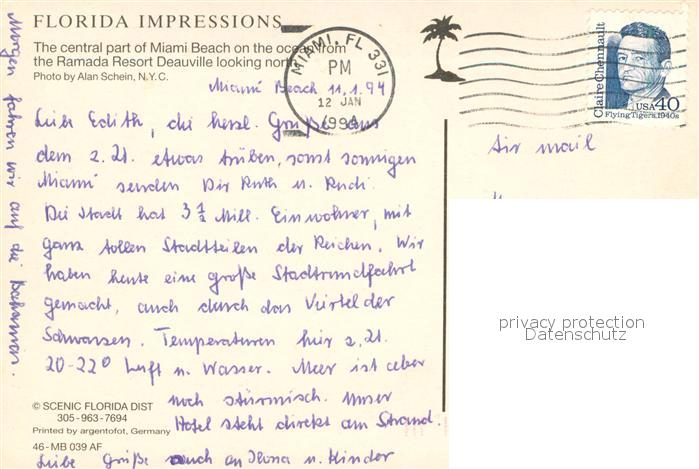 FLORIDA IMPRESSIONS
The central part of Miami Beach on the ocean from
the Ramada Resort Deauville looking north.
Photo by Alan Schein, N.Y.C.
MIAMI, FL 331
PM
12 JAN
1994
Claire Chennault
USA 40
Flying Tigers, 1940s
Miami Beach 11.1.94
Liebe Edith, die herzl. Grüße aus
dem z.Zt. etwas trüben, sonst sonnigen
Miami senden Dir Ruth u. Rudi.
Die Stadt hat 3 ½ Mill. Einwohner, mit
ganz tollen Stadtteilen der Reichen. Wir
haben heute eine große Stadtrundfahrt
gemacht, auch durch das Viertel der
Schwarzen. Temperaturen hier z.Zt.
20-22° Luft u. Wasser. Meer ist aber
noch stürmisch. Unser
Hotel steht direkt am Strand.
Liebe Grüße auch an Ilona u. Kinder
Morgen fahren wir auf die Bahamas.
Air mail
privacy protection
Datenschutz
© SCENIC FLORIDA DIST
305-963-7694
Printed by argentofot, Germany
46-MB 039 AF